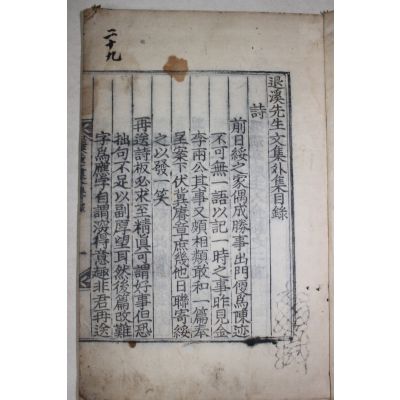 二十九
退溪先生文集外集目錄
詩
前日綏之家偶成勝事出門便爲陳迹
不可無一語以記一時之事昨見金
李兩公其事又頗相類敢和一篇奉
呈案下伏冀賡章庶幾他日聯寄綏
之以發一笑
再送詩板必求至精眞可謂好事但恐
拙句不足以副厚望耳然後篇改難
字爲應字自謂深得意趣非君再送